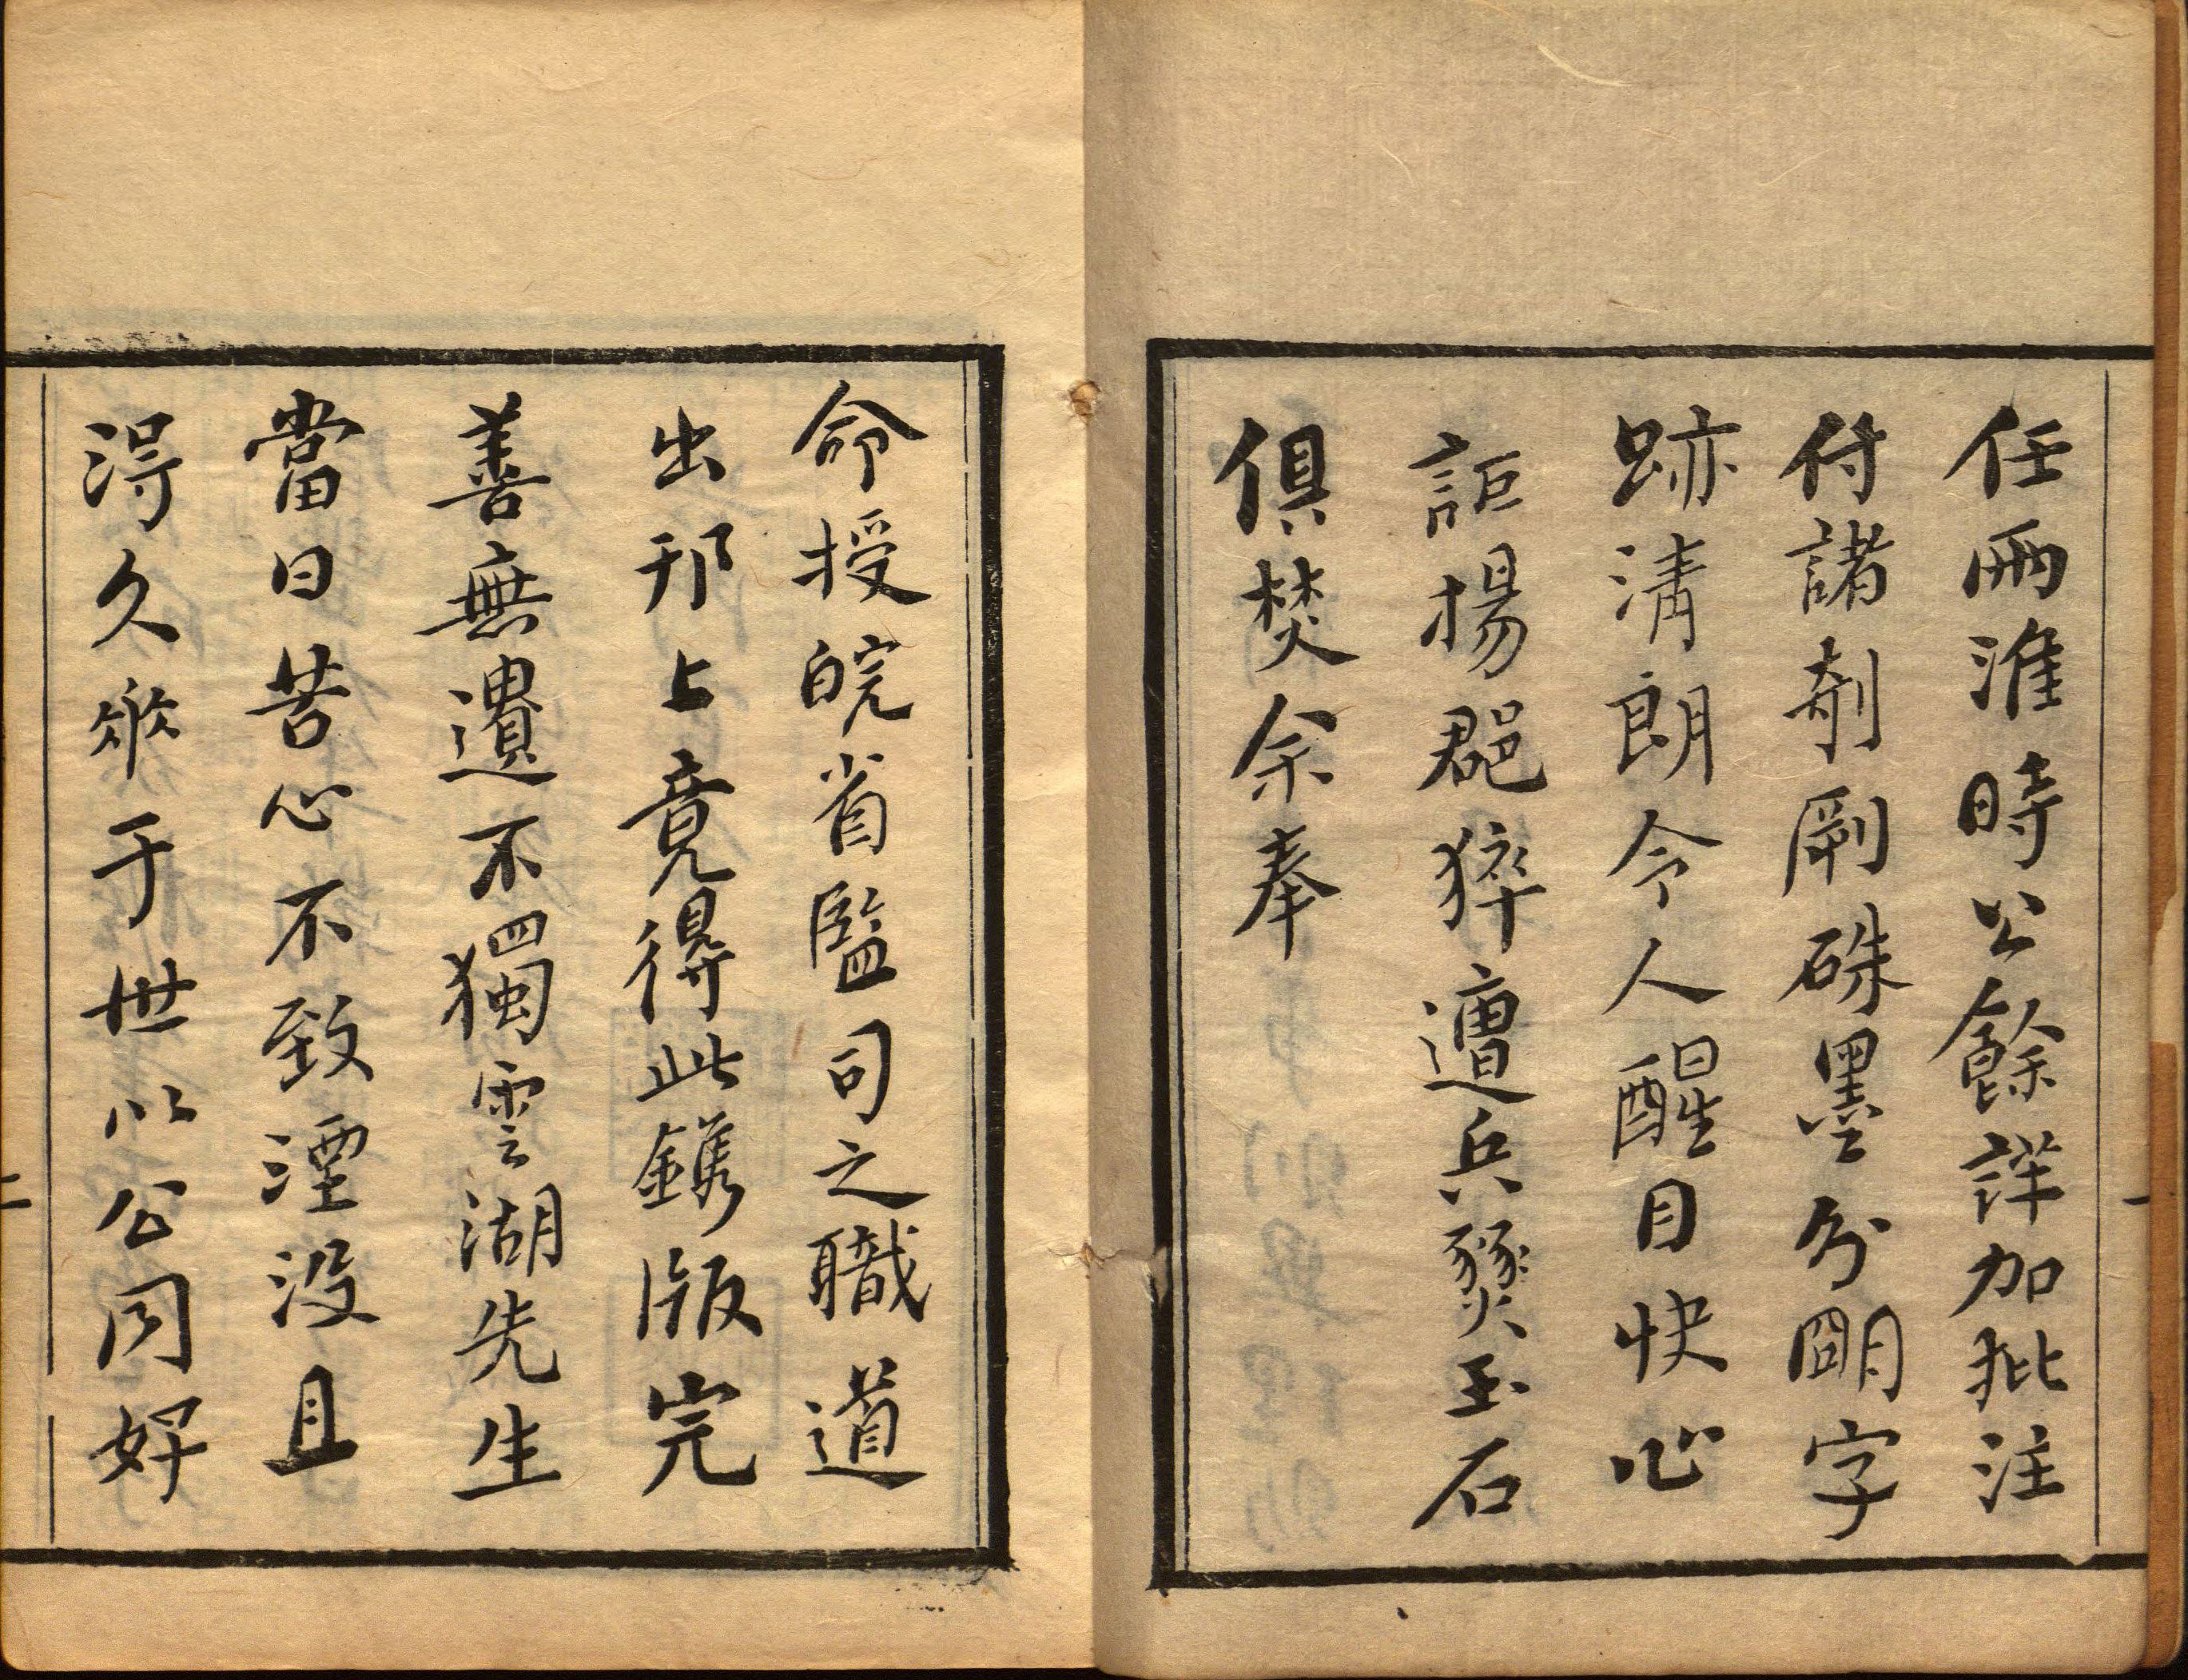 任兩淮時公餘詳加批注
付諸剞劂硃墨分朙字
跡清朗令人醒目快心
詎揚郡猝遭兵燹玉石
俱焚余奉
命授皖省監司之職道
出邗上竟得此鐫版完
善無遺不獨雲湖先生
當日苦心不致湮沒且
得久傳于世以公同好